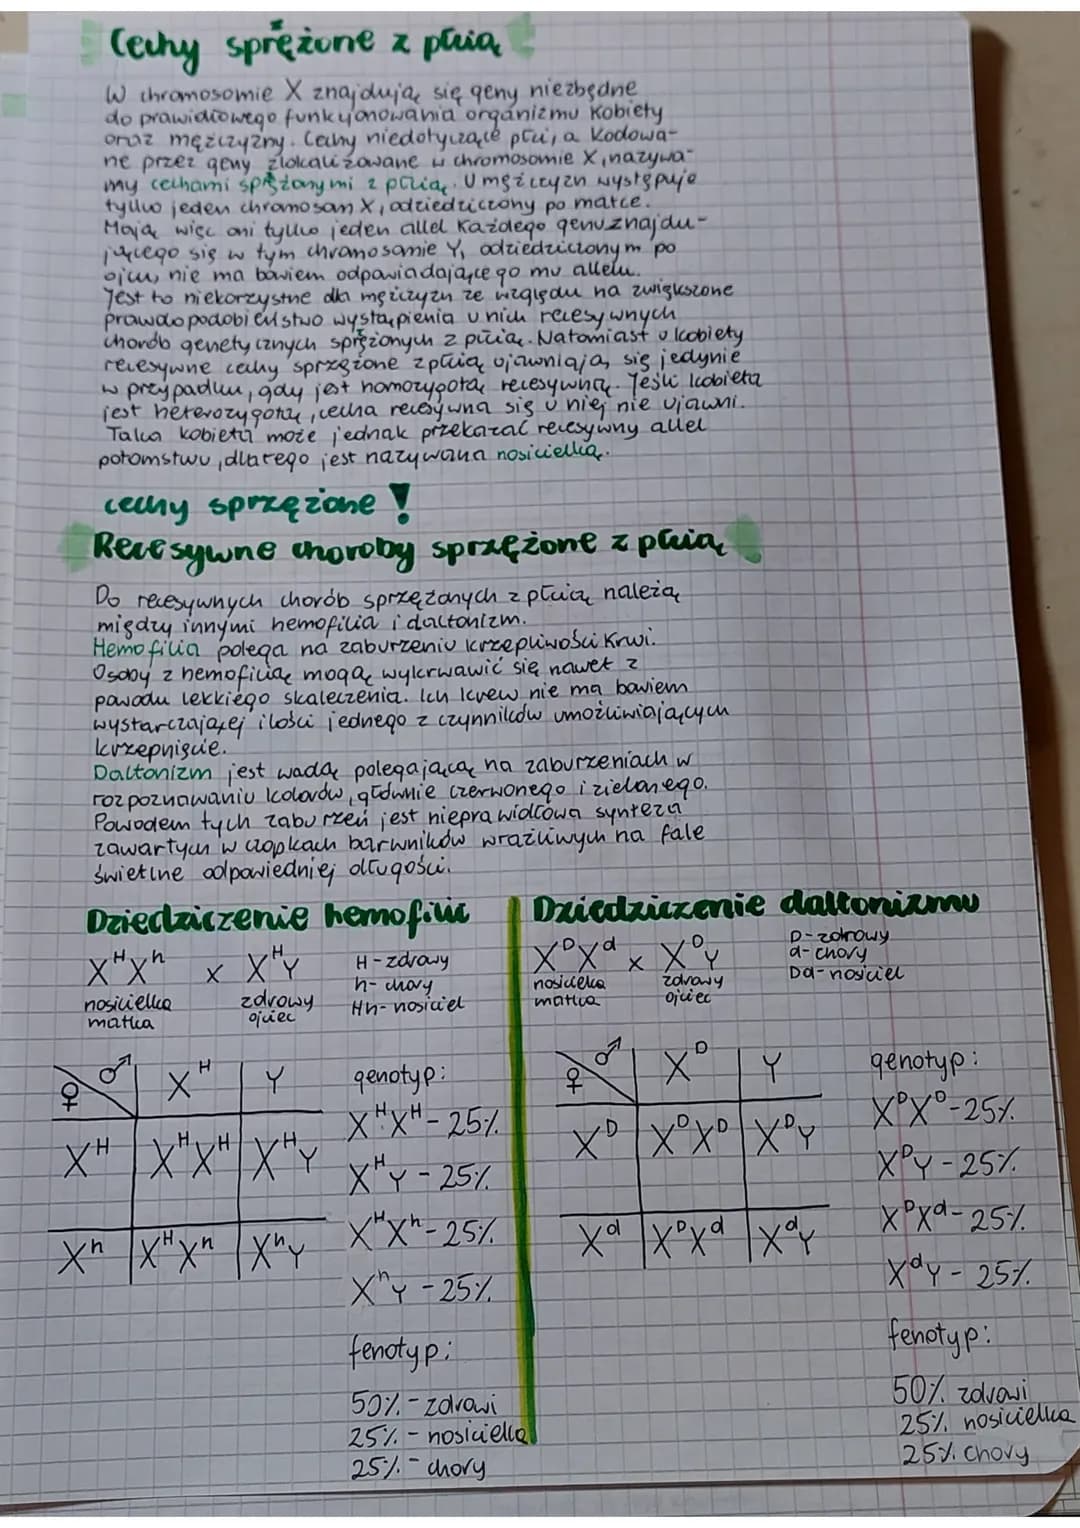 Cechy sprężone z płcią
W chromosomie X znajdują się geny niezbędne
do prawidłowego funkcjonowania organizmu kobiety
oraz mężczyzny. Cechy niedotyczące płci, a kodowa-
ne przez geny zlokalizowane w chromosomie X, nazywa-
my cechami sprężonymi z płcią. U mężczyzn występuje
tylko jeden chromosom X, odziedziczony po matce.
Mają więc oni tylko jeden allel każdego genu znajdu-
jącego się w tym chromosomie Y, odziedziczonym po
ojcu, nie ma bowiem odpowiadającego mu allelu.
Jest to niekorzystne dla mężczyzn ze względu na zwiększone
prawdopodobieństwo wystąpienia u nich recesywnych
chorób genetycznych sprężonych z płcią. Natomiast u kobiety
recesywne cechy sprzężone z płcią ujawniają się jedynie
w przypadku, gdy jest homozygotą recesywną. Jeśli kobieta
jest heterozygotą, cecha recesywna się u niej nie ujawni.
Taka kobieta może jednak przekazać recesywny allel
potomstwu, dlatego jest nazywana nosicielką.
cechy sprzężone !
Recesywne choroby sprzężone z płcią
Do recesywnych chorób sprzężonych z płcią należą
między innymi hemofilia i daltonizm.
Hemofilia polega na zaburzeniu krzepliwości krwi.
Osoby z hemofilią mogą wykrwawić się nawet z
powodu lekkiego skaleczenia. Ich krew nie ma bowiem
wystarczającej ilości jednego z czynników umożliwiających
krzepnięcie.
Daltonizm jest wadą polegającą na zaburzeniach w
rozpoznawaniu kolorów, głównie czerwonego i zielonego.
Powodem tych zaburzeń jest nieprawidłowa synteza
zawartych w czopkach barwników wrażliwych na fale
świetlne odpowiedniej długości.
Dziedziczenie hemofilii
X^H X^h x X^H Y
H - zdrowy
h - chory
Hh - nosiciel
nosicielka zdrowy
matka ojciec
♀ ♂ X^H Y
X^H X^H X^H X^H Y
X^h X^H X^h X^h Y
genotyp:
X^H X^H - 25%
X^H Y - 25%
X^H X^h - 25%
X^h Y - 25%
fenotyp:
50% - zdrowi
25% - nosicielka
25% - chory
Dziedziczenie daltonizmu
X^D X^d x X^D Y
D - zdrowy
d - chory
Dd - nosiciel
nosicielka zdrowy
matka ojciec
♀ ♂ X^D Y
X^D X^D X^D X^D Y
X^d X^D X^d X^d Y
genotyp:
X^D X^D - 25%
X^D Y - 25%
X^D X^d - 25%
X^d Y - 25%
fenotyp:
50% zdrowi
25% nosicielka
25% chory